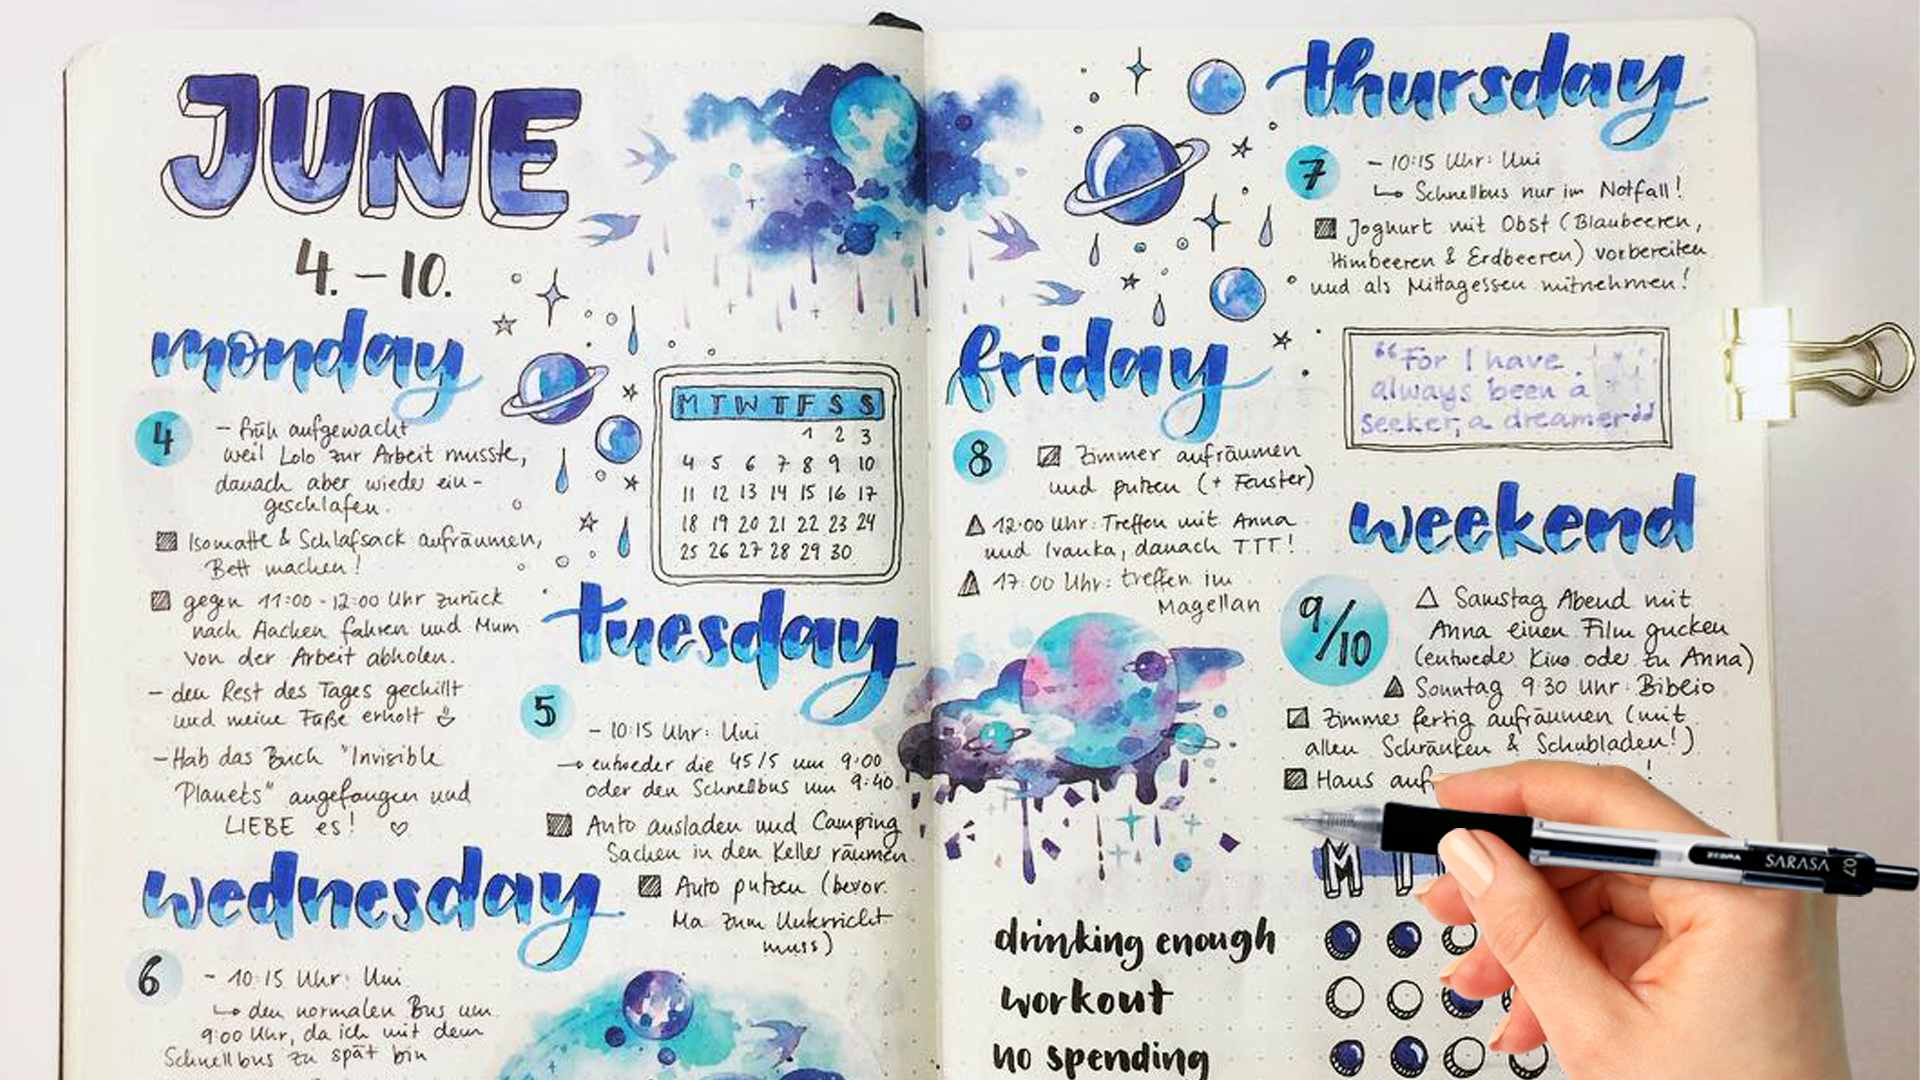 JUNE
4. – 10.
monday
4
- früh aufgewacht
weil Lolo zur Arbeit musste,
danach aber wieder ein-
geschlafen.
Isomatte & Schlafsack aufräumen,
Bett machen!
gegen 11:00 - 12:00 Uhr zurück
nach Aachen fahren und Mum
von der Arbeit abholen.
- den Rest des Tages gechillt
und meine Füße erholt
- Hab das Buch "Invisible
Planets" angefangen und
LIEBE es! ♡
M T W T F S S
1 2 3
4 5 6 7 8 9 10
11 12 13 14 15 16 17
18 19 20 21 22 23 24
25 26 27 28 29 30
tuesday
5
- 10:15 Uhr: Uni
→ entweder die 45/5 um 9:00
oder den Schnellbus um 9:40
Auto ausladen und Camping
Sachen in den Keller räumen.
Auto putzen (bevor
Ma zum Unterricht
muss)
wednesday
6
- 10:15 Uhr: Uni
↳ den normalen Bus um
9:00 Uhr, da ich mit dem
Schnellbus zu spät bin
thursday
7
- 10:15 Uhr: Uni
↳ Schnellbus nur im Notfall!
Joghurt mit Obst (Blaubeeren,
Himbeeren & Erdbeeren) vorbereiten
und als Mittagessen mitnehmen!
friday
8
Zimmer aufräumen
und putzen (+ Fenster)
12:00 Uhr: Treffen mit Anna
und Ivanka, danach TTT!
17:00 Uhr: treffen im
Magellan
"For I have
always been a
seeker, a dreamer"
weekend
9/10
Samstag Abend mit
Anna einen Film gucken
(entweder Kino oder zu Anna)
Sonntag 9:30 Uhr: Bibeio
Zimmer fertig aufräumen (mit
allen Schränken & Schubladen!)
Haus auf
M T
drinking enough
workout
no spending
ZEBRA SARASA 0.7